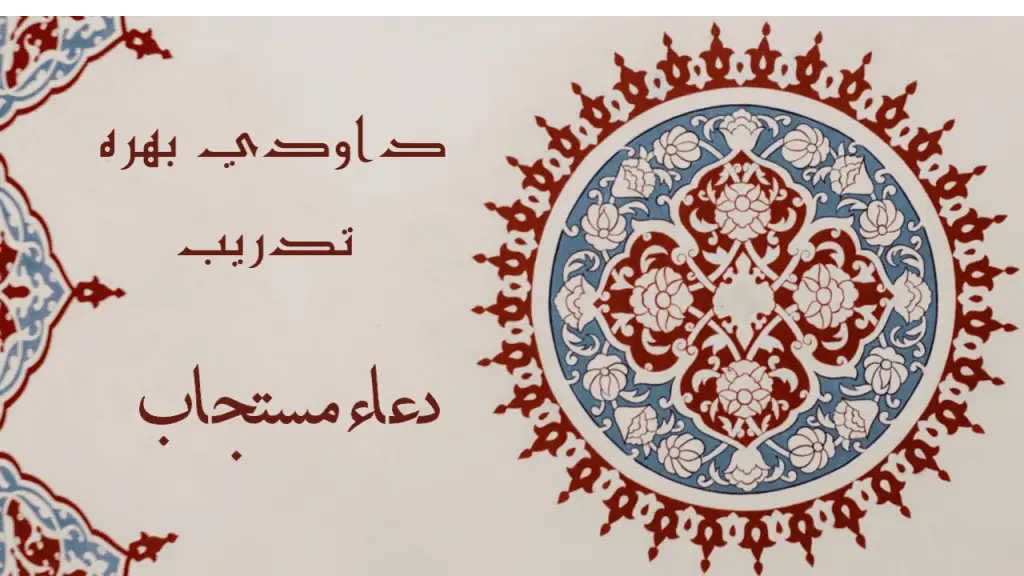 داودي بهره
تدريب
دعاء مستجاب